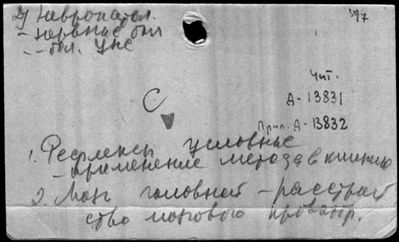 2) Невропатол.
- нервные бол
- - бол. ЦНС
Чит.
А-13831
Прил. А-13832
С
1. Рефлексы условные
- применение метода в клинике
2. Мозг головной - расстрой
ство мозгового кровообр.